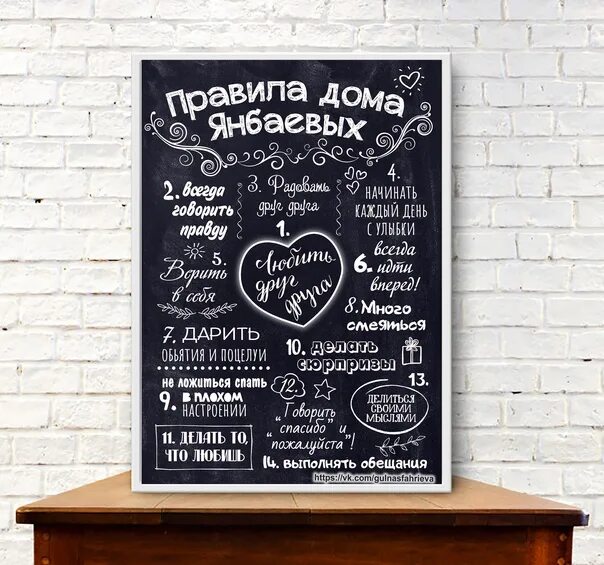 Правила дома
Янбаевых
2. всегда
говорить
правду
3. Радовать
друг друга
4.
НАЧИНАТЬ
КАЖДЫЙ ДЕНЬ
С УЛЫБКИ
1.
Любить
друг
друга
5.
Верить
в себя
всегда
6. идти
вперед!
7. ДАРИТЬ
ОБЪЯТИЯ И ПОЦЕЛУИ
8. Много
смеяться
не ложиться спать
9. в плохом
НАСТРОЕНИИ
10. делать
сюрпризы
11. ДЕЛАТЬ ТО,
ЧТО ЛЮБИШЬ
12.
"Говорить
"спасибо" и
"пожалуйста"!
13.
ДЕЛИТЬСЯ
СВОИМИ
МЫСЛЯМИ
14. ВЫПОЛНЯТЬ ОБЕЩАНИЯ
https://vk.com/gulnasfahrieva